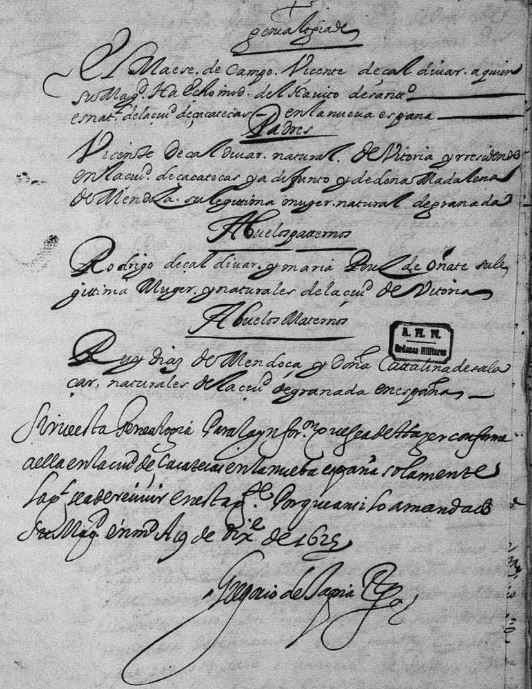 genealogia de
El Maese. de Campo. Vicente deçaldiuar. a quien
su Magd. Ha echo mrd. del Hauito de santto
es natl. dela ciud. deçacatecas — en la nueua españa
Padres
Vicente deçaldiuar. natural. de Vitoria y rresidendo
en la ciud. de çacatecas ya difunto y de doña Madalena
de Mendoça. su legittima muger. natural de granada
Abuelos patternos
Rodrigo deçaldiuar. y maria de Oñate su le
gittima Muger. y naturales de la ciud. de Vitoria
Abuelos Maternos
Ruy dias de Mendoça y Doña Cattalina de sala
çar, naturales de la ciud. de granada en españa
A. H. N.
Ordenes Militares
Sirue esta Genealogia Para la ynformon. que se a de Hazer conforme
a ella en la ciud. de Çacatecas en la nueba españa solamente
Porque ansi lo a mandado
Su Magd. en md. A 19 de dize. de 1625
Gregorio de Tapia